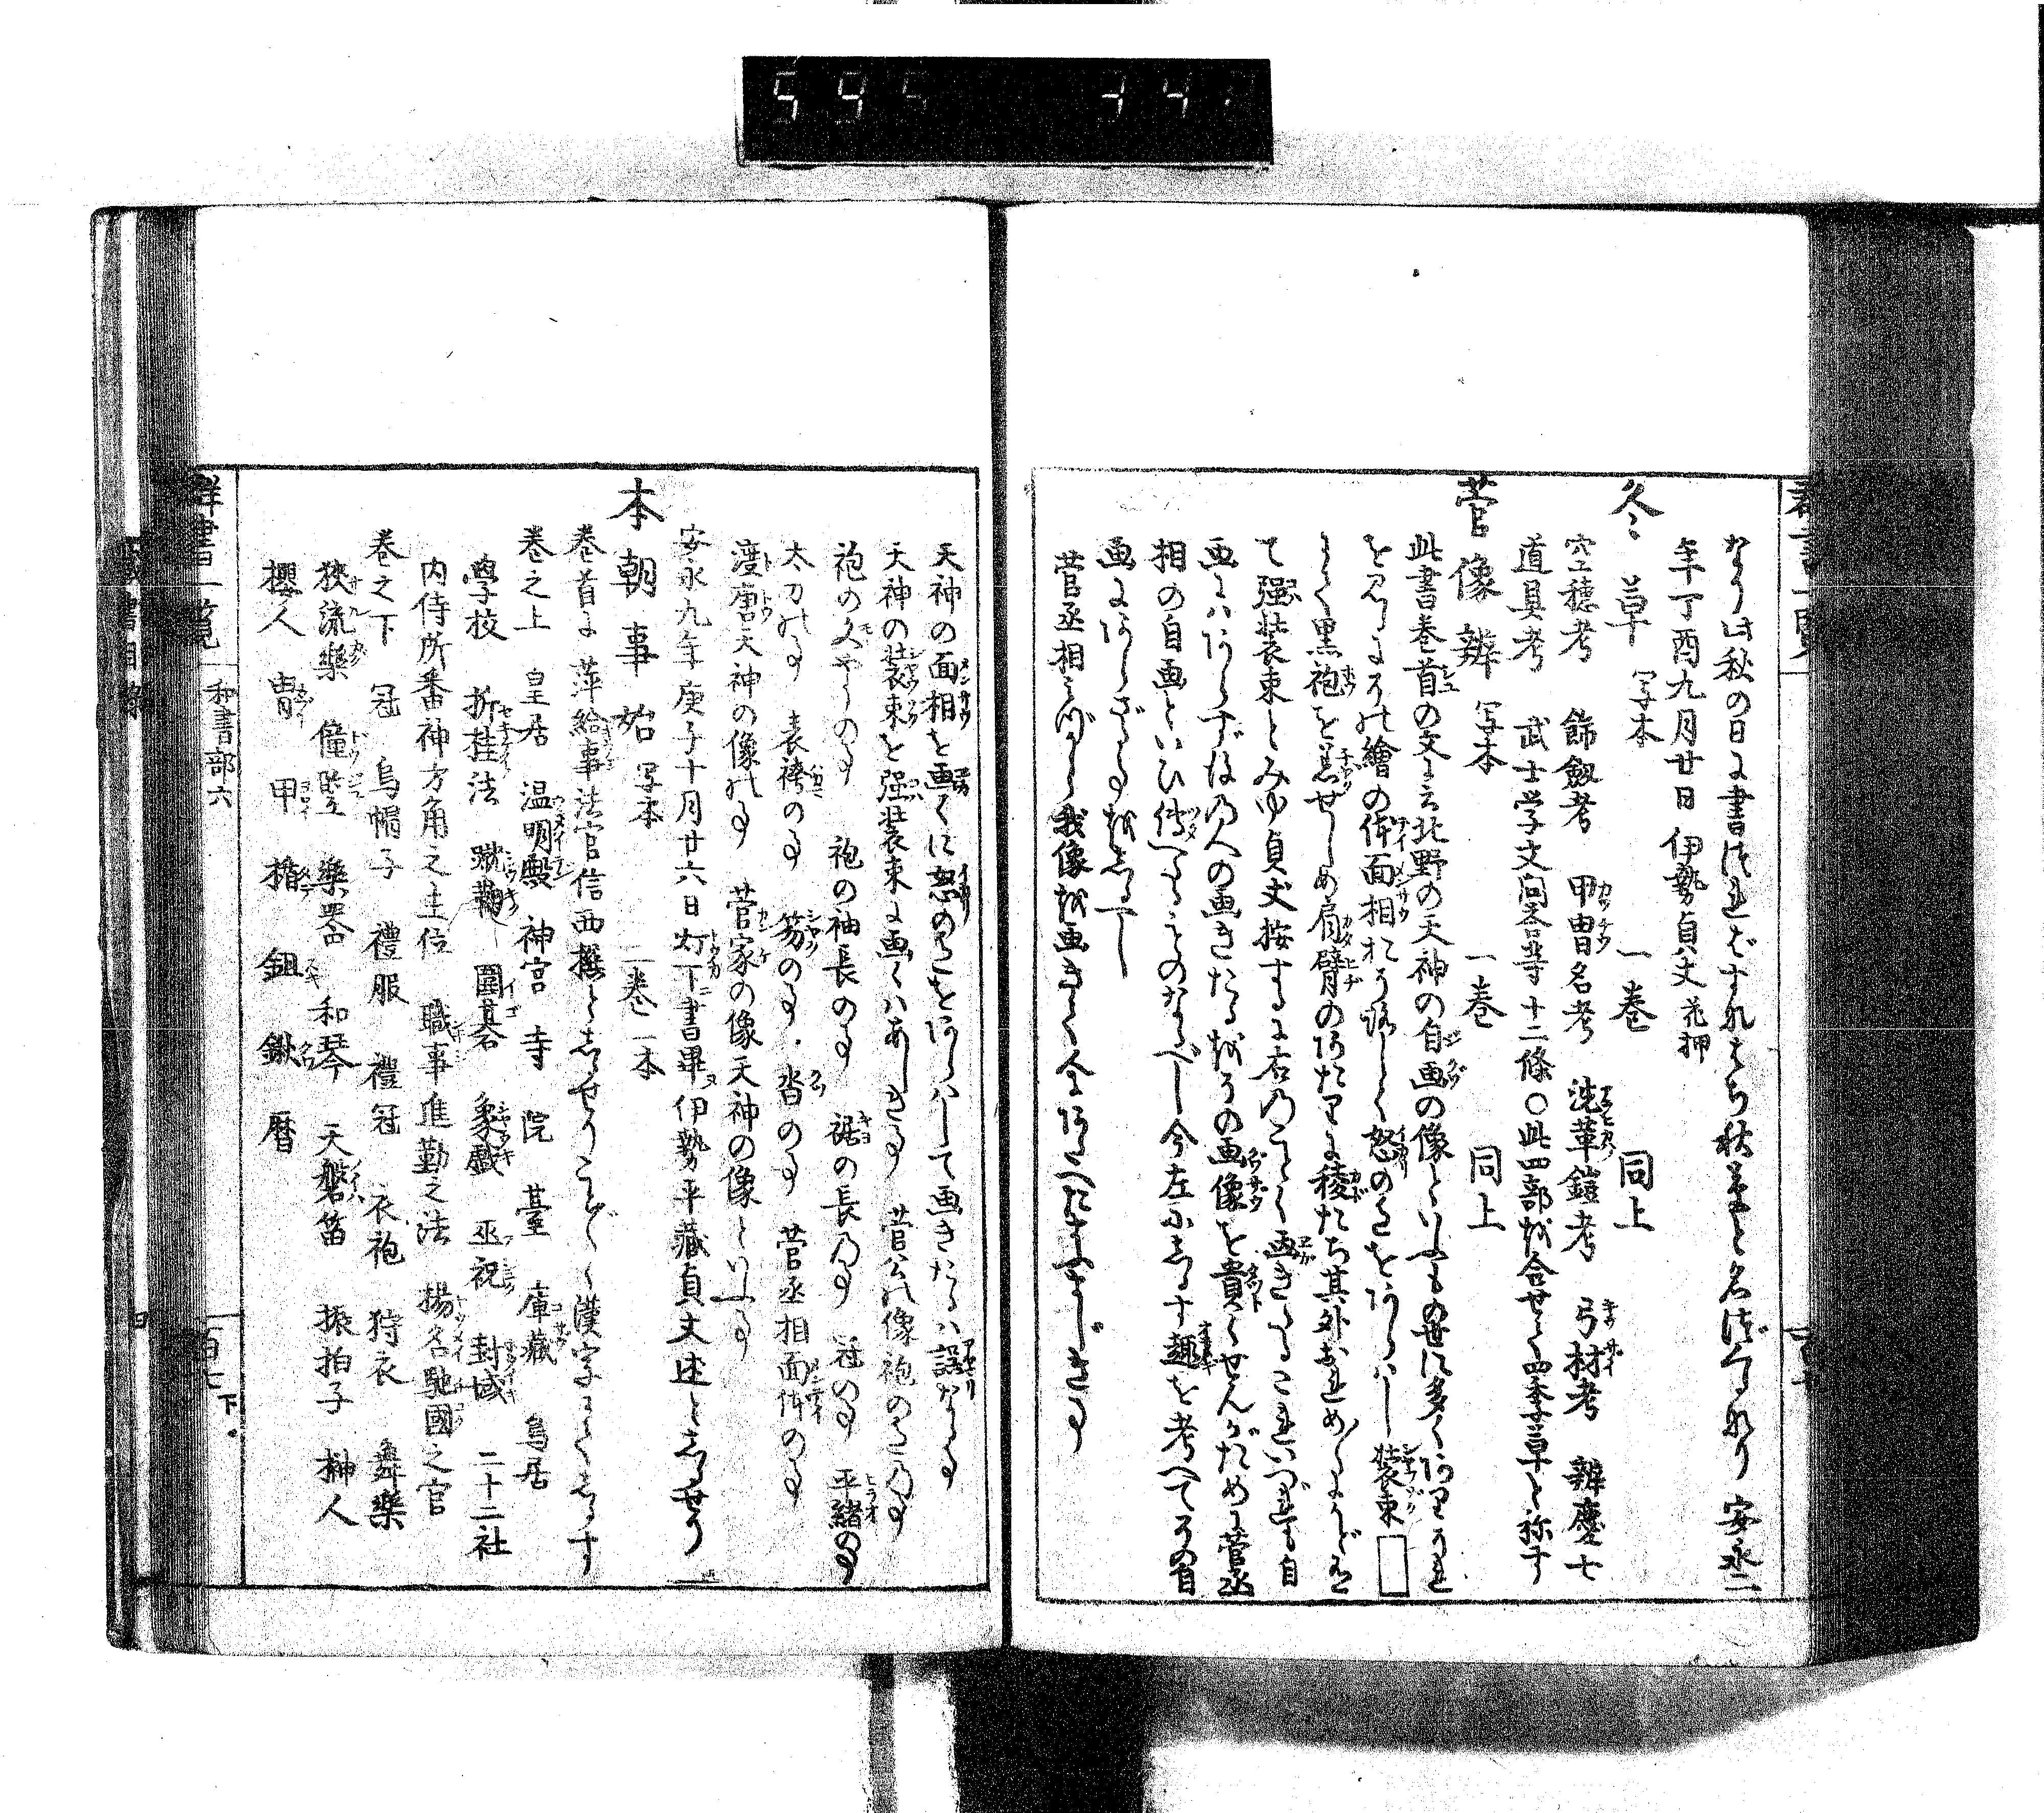 なり此秋の日に書つればすなはち秋草と名づくるなり 安永
年丁酉九月廿日 伊勢貞丈 花押
冬草 写本 一巻 同上
空穂考 飾劔考 甲冑名考 洗革鎧考 弓材考 辨慶七
道具考 武士学文問荅等十二條〇此四部を合せて四季草と称す
菅像辨 写本 一巻 同上
此書巻首の文に云北野の天神の自画の像といふもの世に多くありそれ
を見るにその繪の体面相おそろしく怒のさまをあらはし装束
こく黒袍を着せしめ肩臂のあたりに稜たち其外
て強装束とみゆ貞丈按するに右のごとく画きたるこれいづれも自
画にはあらずほかの人の画きたるをその画像を貴くせんがために菅丞
相の自画といひ傳へたるものなるべし今左にしるす趣を考へてその自
画にあらざる事をしるべし
菅丞相みづから我像を画きて今にあるべきにあらざる事
天神の面相を画くに怒のさまをあらはして画きたるは誤なる事
天神の装束を強装束に画くはあしき事 菅公の像袍の色の事
袍の文やうの事 袍の袖長の事 裾の長の事 冠の事 平緒の事
太刀の事 表袴の事 笏の事 沓の事 菅丞相面体の事
渡唐天神の像の事 菅家の像天神の像といふ事
安永九年庚子十月廿六日灯下書畢伊勢平蔵貞丈述としるせり
本朝事始 写本 二巻一本
巻首に萍給事法官信西撰としるせりこと〴〵く漢字にてしるす
巻之上 皇居 温明殿 神宮 寺院 臺 庫蔵 鳥居
學校 折桂法 蹴鞠 圍碁 象戯 巫祝 封域 二十二社
内侍所番神方角之主位 職事進勤之法 揚名馳國之官
巻之下 冠 烏帽子 禮服 禮冠 衣袍 狩衣 舞樂
狹流樂 僮竪 樂器 和琴 天磐笛 振拍子 榊人
櫻人 冑 甲 楯 鉏 鍬 暦
群書一覧 和書部六 百七 下